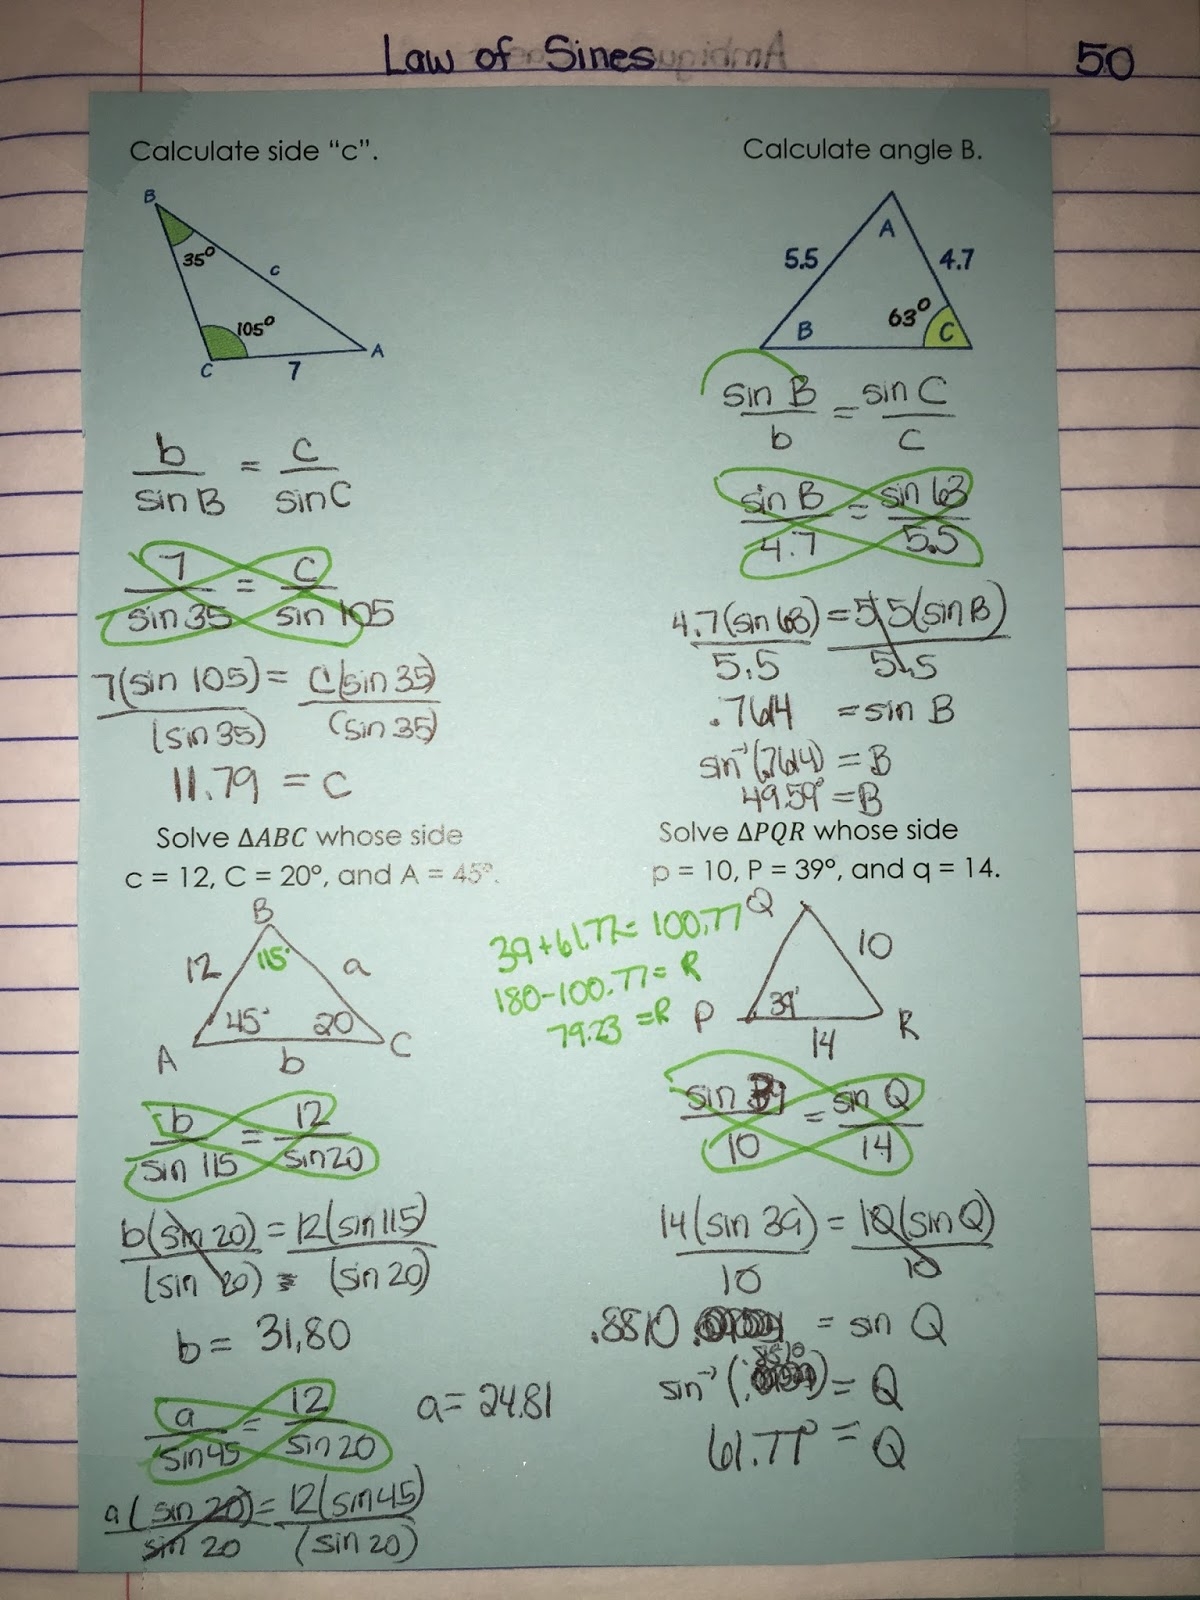 Law of Sines
50
Calculate side “c”.
B
35°
c
105°
C
7
A
b/sin B = c/sin C
7/sin 35 = c/sin 105
7(sin 105)/(sin 35) = c(sin 35)/(sin 35)
11.79 = c
Calculate angle B.
A
5.5
4.7
63°
B
C
sin B/b = sin C/c
sin B/4.7 = sin 63/5.5
4.7(sin 63)/5.5 = 5.5(sin B)/5.5
.7614 = sin B
sin⁻¹(.7614) = B
49.59° = B
Solve ΔABC whose side
c = 12, C = 20°, and A = 45°.
B
115°
12
a
45°
20
A
b
C
b/sin 115 = 12/sin 20
b(sin 20)/(sin 20) = 12(sin 115)/(sin 20)
b = 31.80
a/sin 45 = 12/sin 20
a = 24.81
a(sin 20)/sin 20 = 12(sin 45)/(sin 20)
Solve ΔPQR whose side
p = 10, P = 39°, and q = 14.
39 + 61.77 = 100.77
180 - 100.77 = R
79.23 = R
Q
10
39°
P
14
R
sin 39/10 = sin Q/14
14(sin 39)/10 = 10(sin Q)/10
.8810 = sin Q
sin⁻¹(.8810) = Q
61.77° = Q